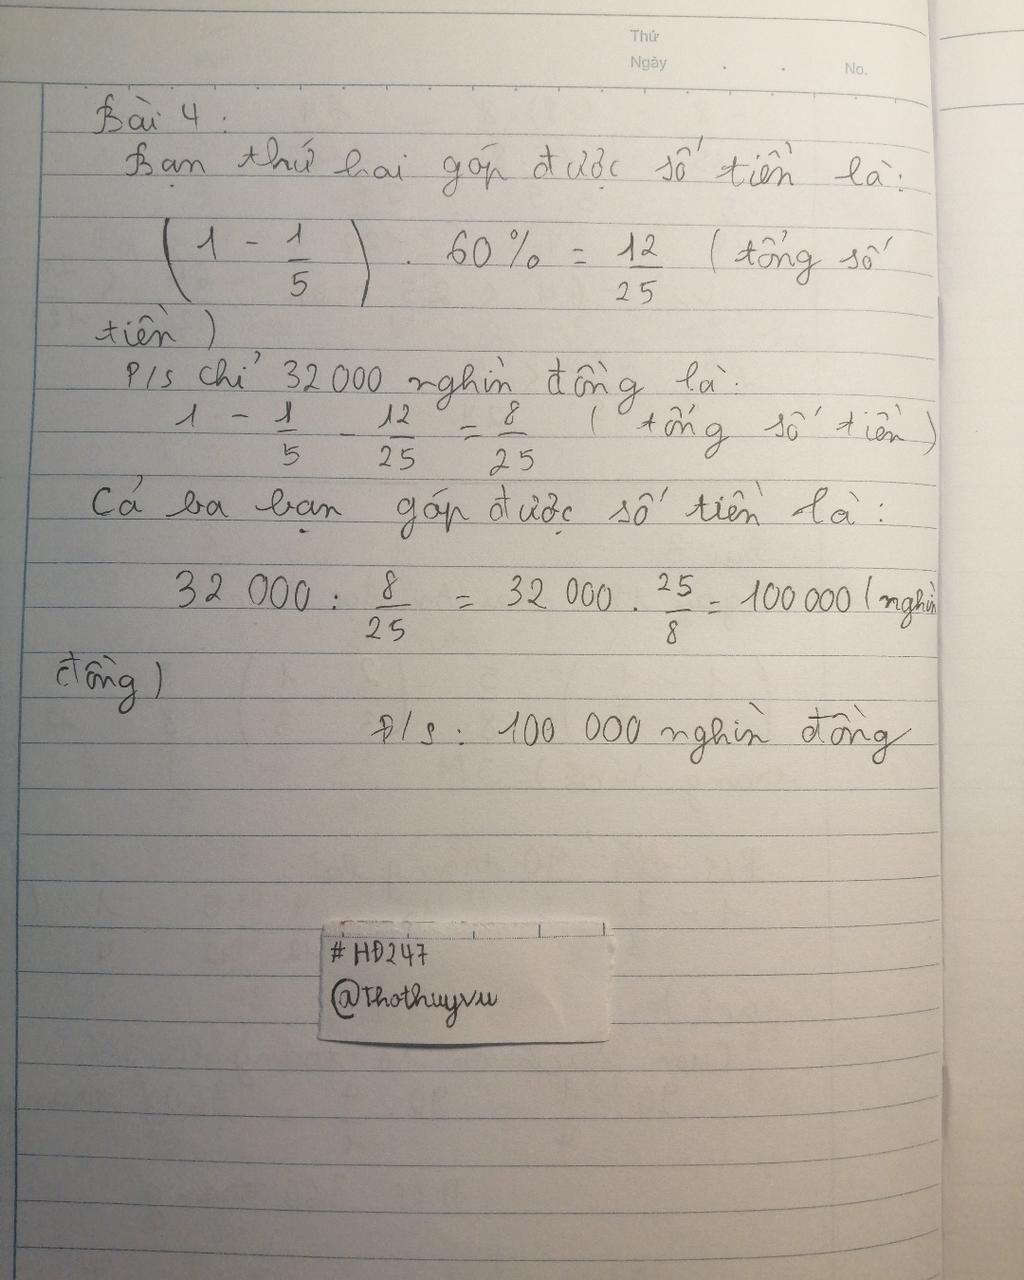 Thứ
Ngày . . No.
Bài 4 :
Bạn thứ hai góp được số tiền là:
(1 - 1/5) . 60% = 12/25 ( tổng số
tiền )
P/s chỉ 32 000 nghìn đồng là:
1 - 1/5 - 12/25 = 8/25 ( tổng số tiền )
Cả ba bạn góp được số tiền là :
32 000 : 8/25 = 32 000 . 25/8 = 100 000 ( nghìn
đồng )
Đ/s : 100 000 nghìn đồng
# HĐ247
@Thothuyvu